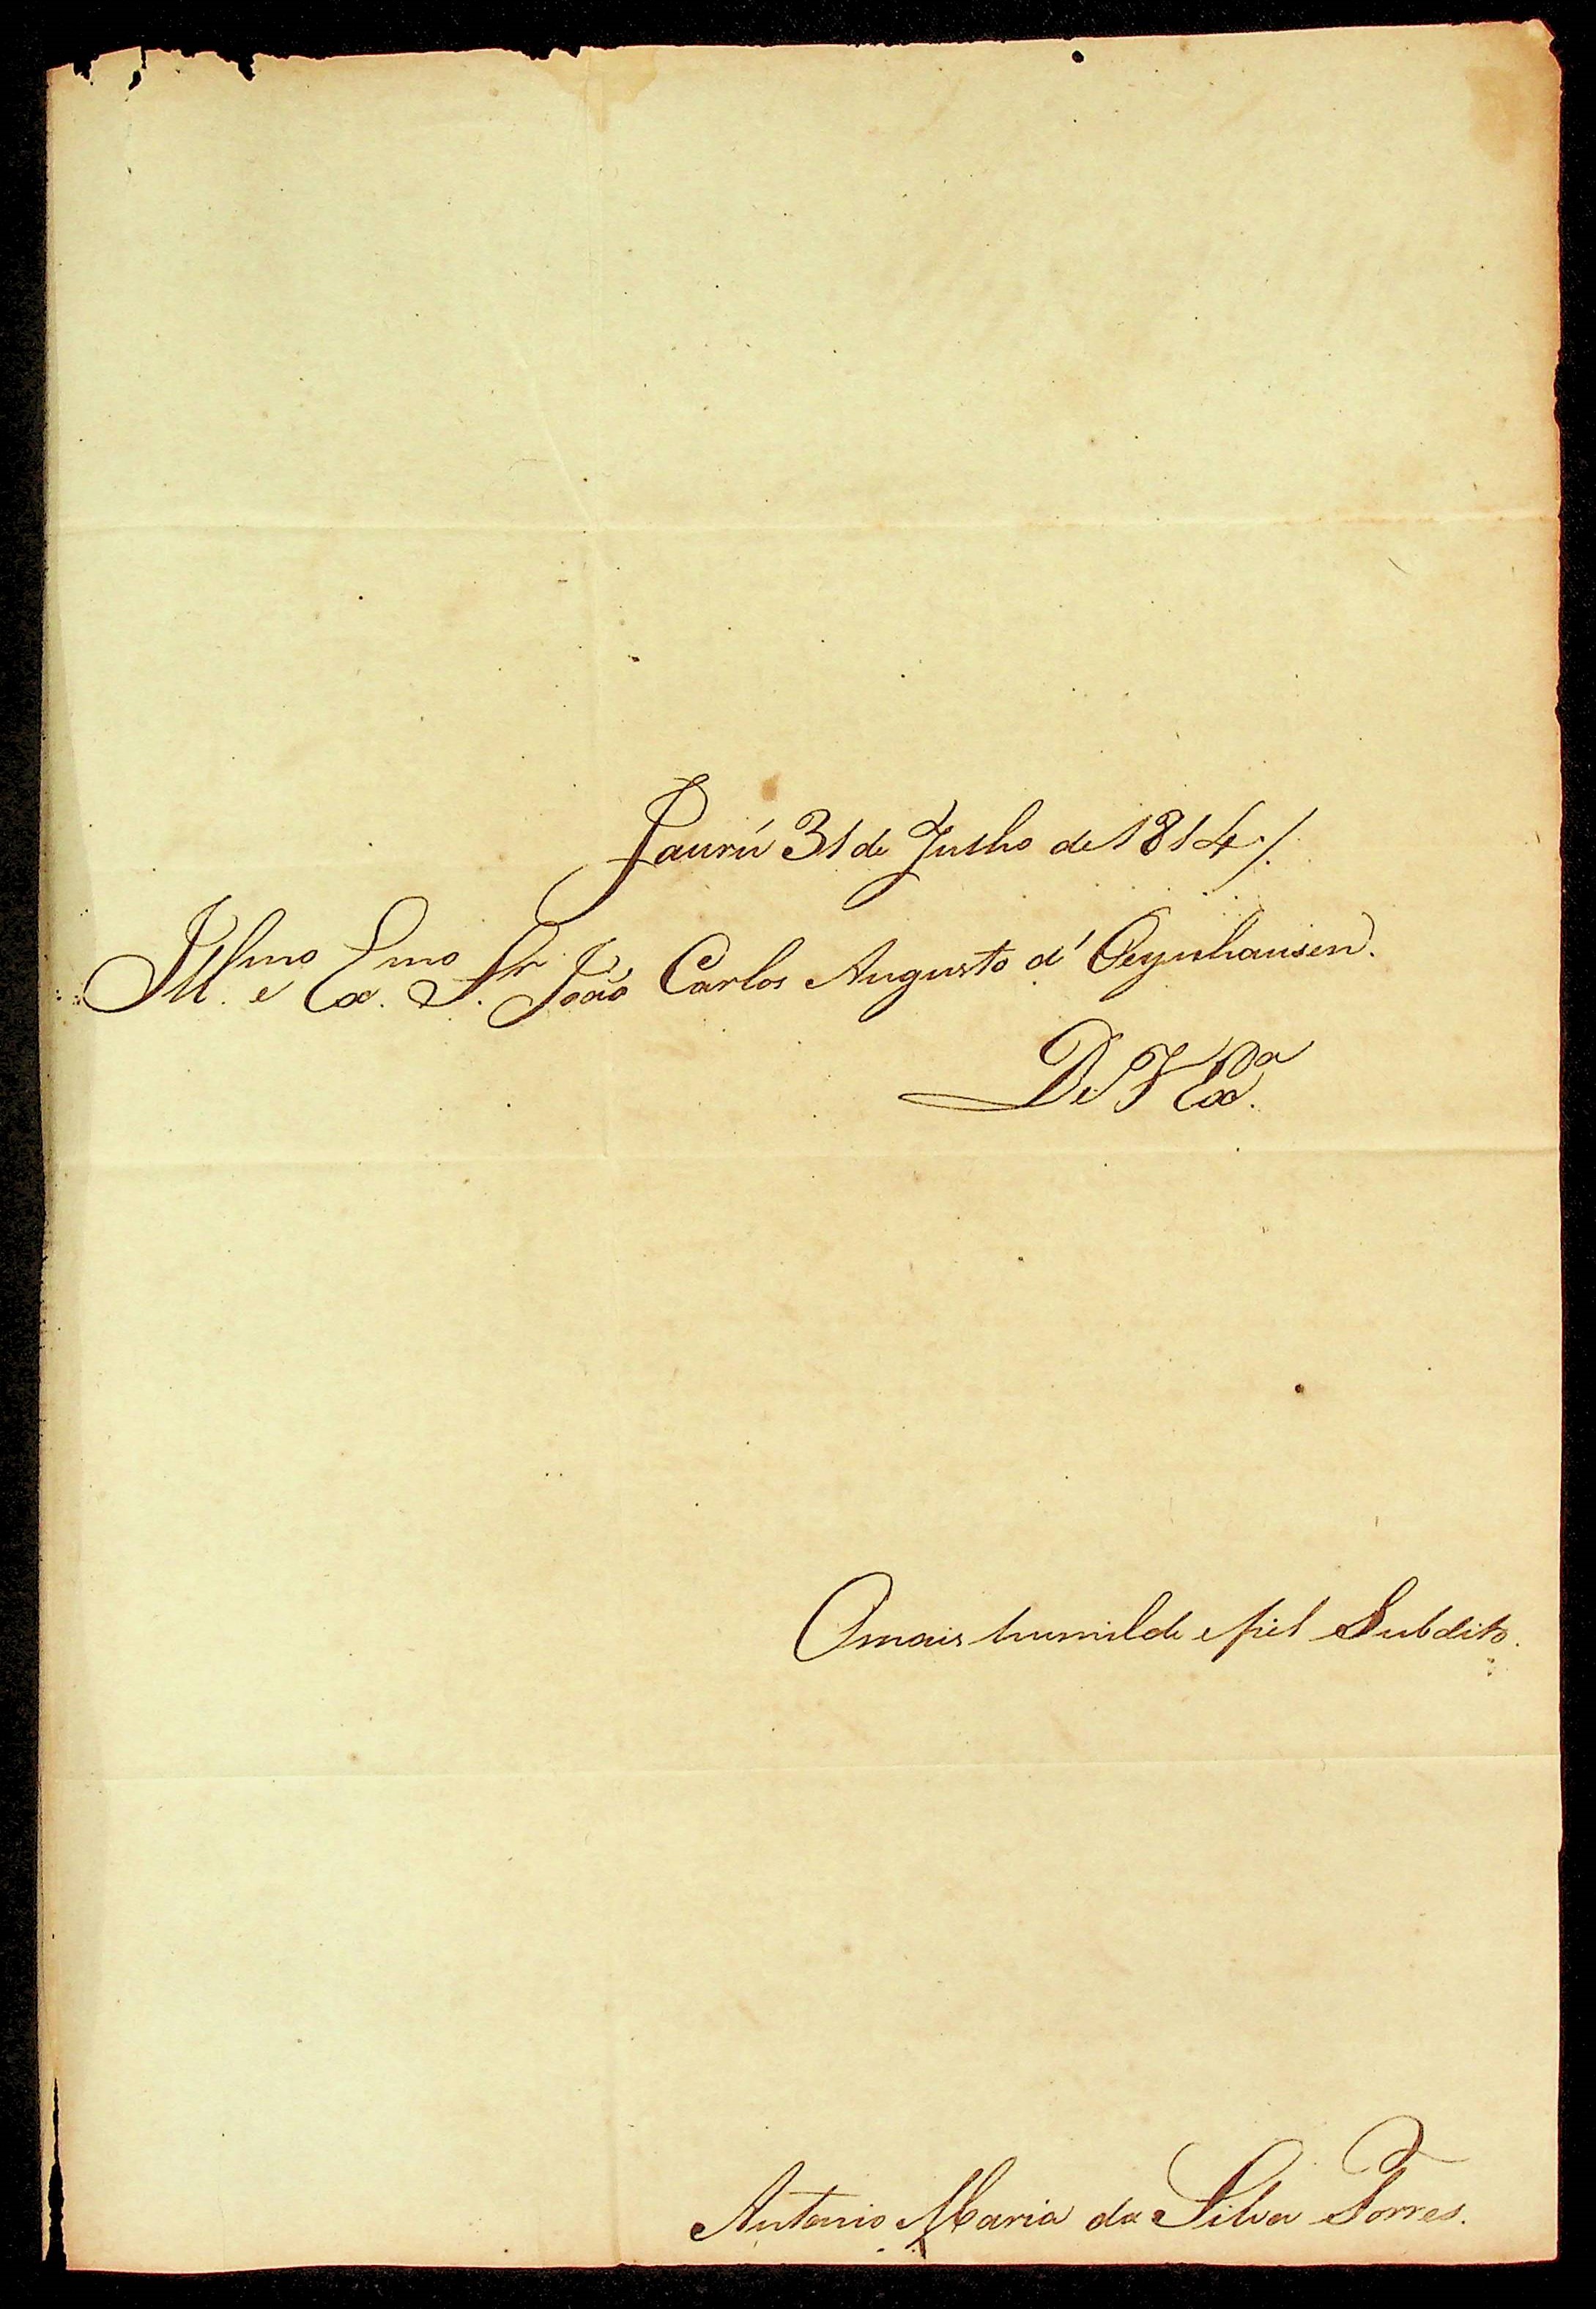 Jaurú 31 de Julho de 1814./.
Ill.mo e Ex.mo S.r João Carlos Augusto d' Oeynhausen.
De V Ex.a
O mais humilde e fiel Subdito.
Antonio Maria da Silva Torres.